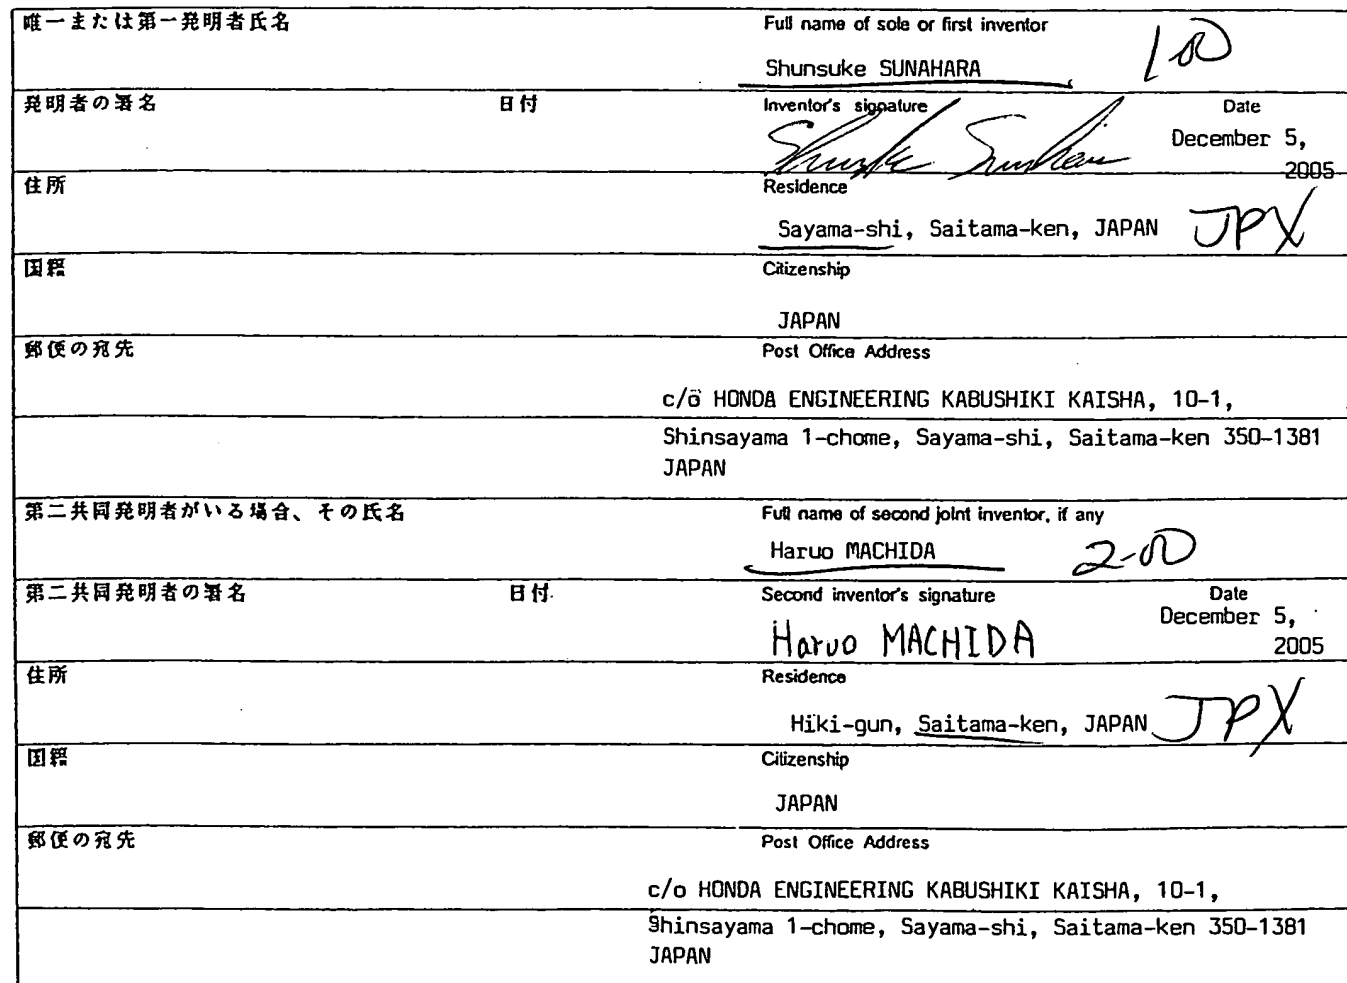 唯一または第一発明者氏名 Full name of sole or first inventor
Shunsuke SUNAHARA 100
発明者の署名 日付 Inventor's signature Date
December 5,
2005
住所 Residence
Sayama-shi, Saitama-ken, JAPAN JPX
国籍 Citizenship
JAPAN
郵便の宛先 Post Office Address
c/o HONDA ENGINEERING KABUSHIKI KAISHA, 10-1,
Shinsayama 1-chome, Sayama-shi, Saitama-ken 350-1381
JAPAN
第二共同発明者がいる場合、その氏名 Full name of second joint inventor, if any
Haruo MACHIDA 2-00
第二共同発明者の署名 日付 Second inventor's signature Date
December 5,
Haruo MACHIDA 2005
住所 Residence
Hiki-gun, Saitama-ken, JAPAN JPX
国籍 Citizenship
JAPAN
郵便の宛先 Post Office Address
c/o HONDA ENGINEERING KABUSHIKI KAISHA, 10-1,
Shinsayama 1-chome, Sayama-shi, Saitama-ken 350-1381
JAPAN